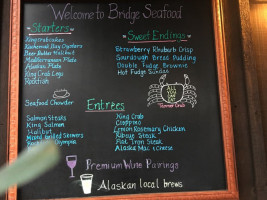 Welcome to Bridge Seafood
Starters
King Crabcakes
Kachemak Bay Oysters
Beer Batter Halibut
Mediterranean Plate
Alaskan Plate
King Crab Legs
Roasted
Seafood Chowder
Sweet Endings
Strawberry Rhubarb Crisp
Sourdough Bread Pudding
Double Fudge Brownie
Hot Fudge Sundae
ALL YOU CAN EAT
Tanner Crab
Entrees
Salmon Steaks
King Salmon
Halibut
Mixed Grilled Skewers
Olympia
King Crab
Cioppino
Lemon Rosemary Chicken
Ribeye Steak
Flat Iron Steak
Alaska Mac & Cheese
Premium Wine Pairings
Alaskan local brews